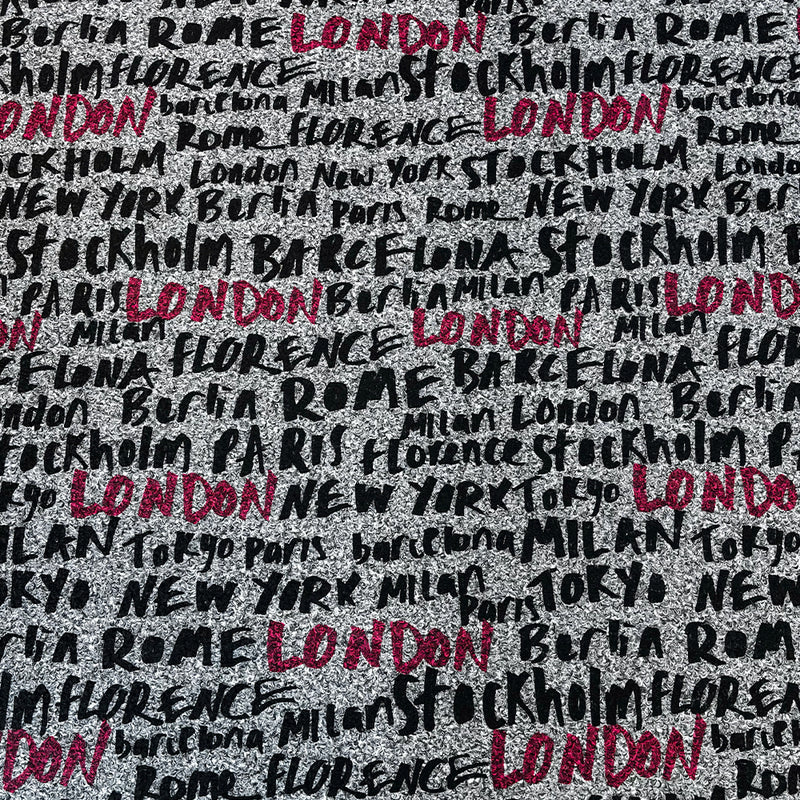 Paris
Berlin ROME LONDON Berlin ROME
kholm FLORENCE Milan Stockholm FLORENCE
LONDON barcelona LONDON barcelona
Rome FLORENCE Rome
OCKHOLM London New York STOCKHOLM London
NEW YORK Berlin Paris Rome NEW YORK Ber
Stockholm BARCELONA Stockholm B
PARIS LONDON Berlin Milan PARIS LOND
ON Milan LONDON Milan
CELONA FLORENCE BARCELONA FLOR
ndon Berlin ROME Milan London Berlin
Stockholm PARIS Florence Stockholm PA
kyo LONDON NEW YORK Tokyo LONDO
ILAN Tokyo paris barcelona MILAN Tokyo
OKYO NEW YORK Milan Paris TOKYO NEW
rlin ROME LONDON Berlin ROM
lm FLORENCE Milan Stockholm FLOREN
DON barcelona LONDON barcelo
Rome FLORENCE Rom